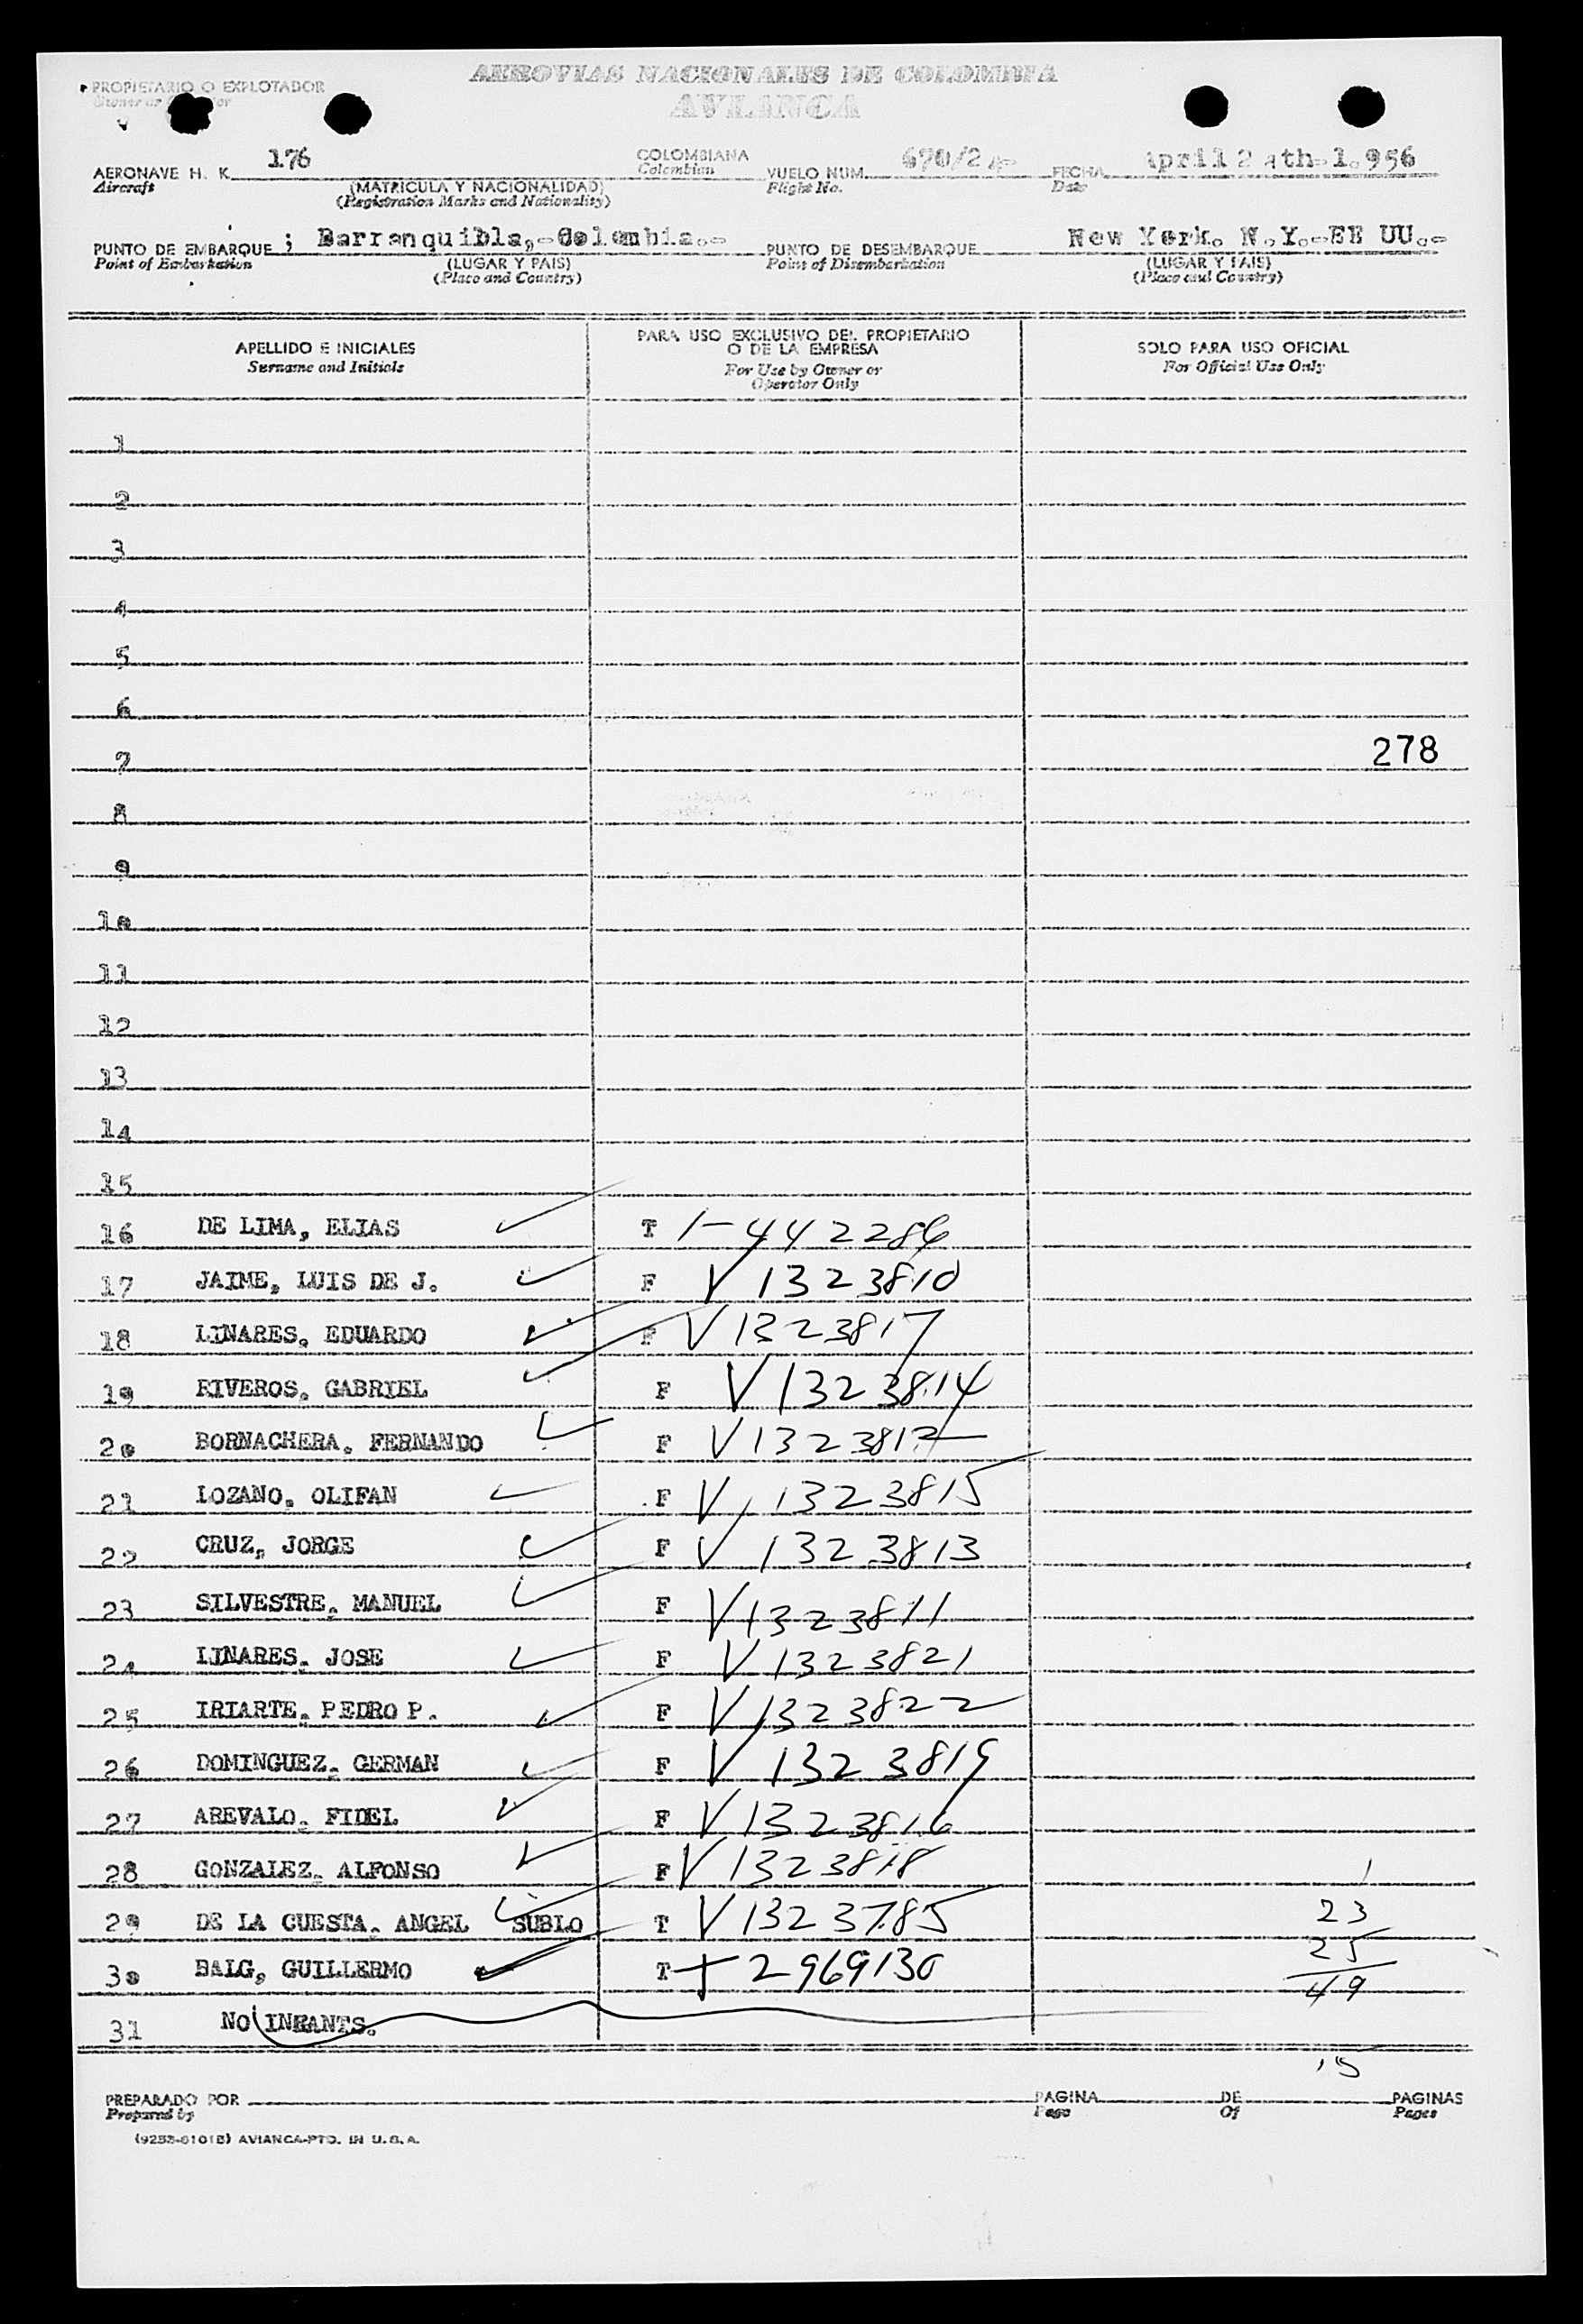 AEROVIAS NACIONALES DE COLOMBIA
AVIANCA
PROPIETARIO O EXPLOTADOR
AERONAVE H. K. 176 COLOMBIANA VUELO NUM. 670/24- FECHA April 24th-1.956
Aircraft (MATRICULA Y NACIONALIDAD) Colombian Flight No. Date
(Registration Marks and Nationality)
PUNTO DE EMBARQUE ; Barranquibla,-Colombia.- PUNTO DE DESEMBARQUE New York. N.Y.-EE UU.-
Point of Embarkation (LUGAR Y PAIS) Point of Disembarkation (LUGAR Y PAIS)
(Place and Country) (Place and Country)
APELLIDO E INICIALES
Surname and Initials
PARA USO EXCLUSIVO DEL PROPIETARIO
O DE LA EMPRESA
For Use by Owner or
Operator Only
SOLO PARA USO OFICIAL
For Official Use Only
1
2
3
4
5
6
7 278
8
9
10
11
12
13
14
15
16 DE LIMA, ELIAS T 1-442286
17 JAIME, LUIS DE J. F V 1323810
18 LINARES, EDUARDO F V 1323817
19 RIVEROS, GABRIEL F V 1323814
20 BORNACHERA, FERNANDO F V 1323812
21 LOZANO, OLIFAN F V 1323815
22 CRUZ, JORGE F V 1323813
23 SILVESTRE, MANUEL F V 1323811
24 LINARES, JOSE F V 1323821
25 IRIARTE, PEDRO P. F V 1323822
26 DOMINGUEZ, GERMAN F V 1323819
27 AREVALO, FIDEL F V 1323816
28 GONZALEZ, ALFONSO F V 1323818 1
29 DE LA CUESTA, ANGEL SUBLO T V 1323785 23
30 BALG, GUILLERMO T 2969130 25
49
31 NO INFANTS.
15
PREPARADO POR PAGINA DE PAGINAS
Prepared by Page Of Pages
AVIANCA-PTD. IN U.S.A.